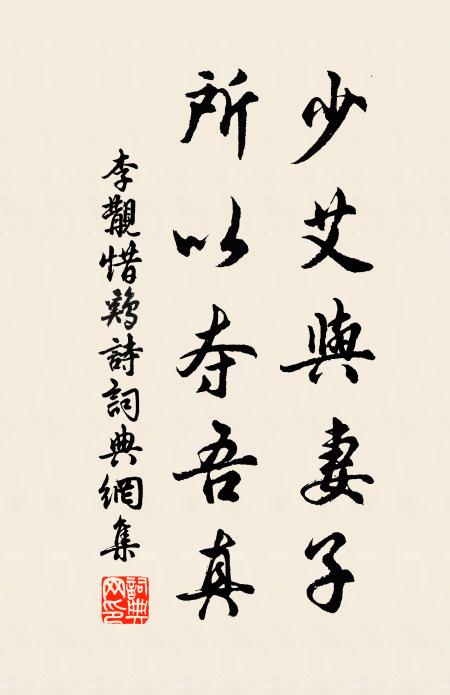 少艾與妻子
所以夺吾真
李觀惜鷄詩詞典網集
詞典网印